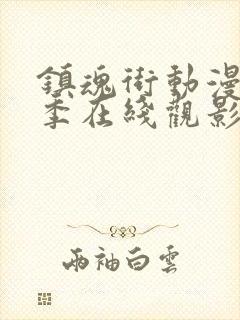 鎮魂街動漫
季在綫觀影
兩袖白雲